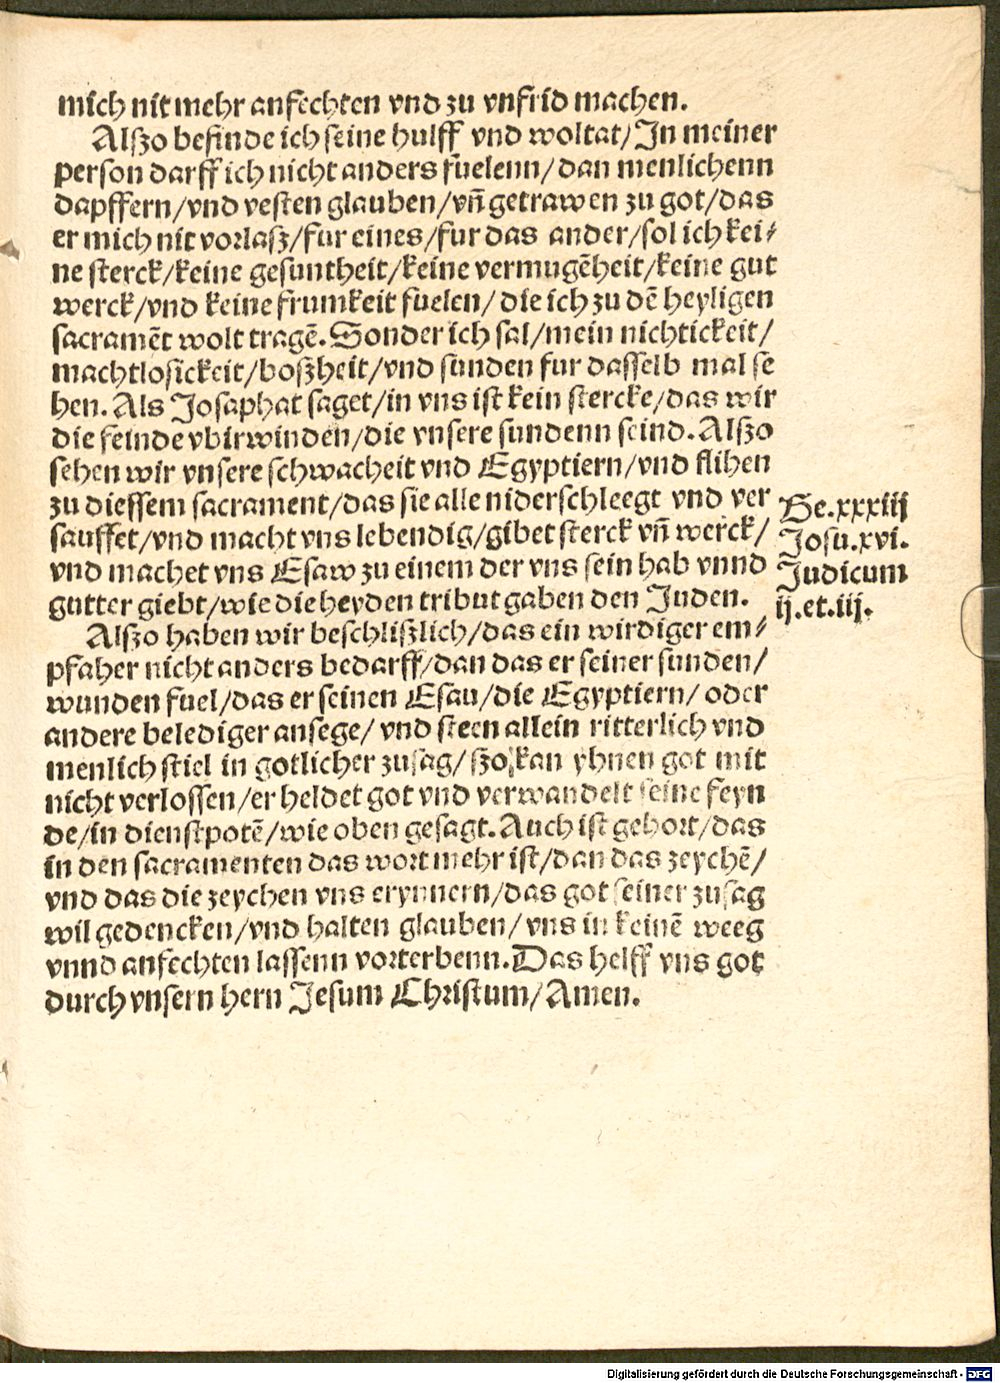 mich nit mehr anfechten vnd zu vnfrid machen.
Alszo befinde ich seine hulff vnd woltat/ In meiner
person darff ich nicht anders fuelenn/ dan menlichenn
dapffern/vnd vesten glauben/vñ getrawen zu got/das
er mich nit vorlasz/fur eines/fur das ander/sol ich kei⸗
ne sterck/keine gesuntheit/keine vermugēheit/keine gut
werck/vnd keine frumkeit fuelen/ die ich zu dē heyligen
sacramēt wolt tragē. Sonder ich sal/mein nichtickeit/
machtlosickeit/boszheit/vnd sunden fur dasselb mal se
hen. Als Josaphat saget/in vns ist kein stercke/das wir
die feinde vbirwinden/die vnsere sundenn seind. Alszo
sehen wir vnsere schwacheit vnd Egyptiern/vnd flihen
zu diessem sacrament/das sie alle niderschleegt vnd ver
sauffet/vnd macht vns lebendig/gibet sterck vñ werck/
vnd machet vns Esaw zu einem der vns sein hab vnnd
gutter giebt/wie die heyden tribut gaben den Juden.
Ge.xxxiij
Josu.xvi.
Judicum
ij.et.iij.
Alszo haben wir beschliszlich/das ein wirdiger em⸗
pfaher nicht anders bedarff/dan das er seiner sunden/
wunden fuel/das er seinen Esau/die Egyptiern/ oder
andere belediger ansege/ vnd steen allein ritterlich vnd
menlich stiel in gotlicher zusag/ szo kan yhnen got mit
nicht verlossen/er heldet got vnd verwandelt seine feyn
de/in dienstpotē/wie oben gesagt. Auch ist gehort/das
in den sacramenten das wort mehr ist/dan das zeychē/
vnd das die zeychen vns erynnern/das got seiner zusag
wil gedencken/vnd halten glauben/ vns in keinē weeg
vnnd anfechten lassenn vorterbenn. Das helff vns got
durch vnsern hern Jesum Christum/ Amen.
Digitalisierung gefördert durch die Deutsche Forschungsgemeinschaft - DFG